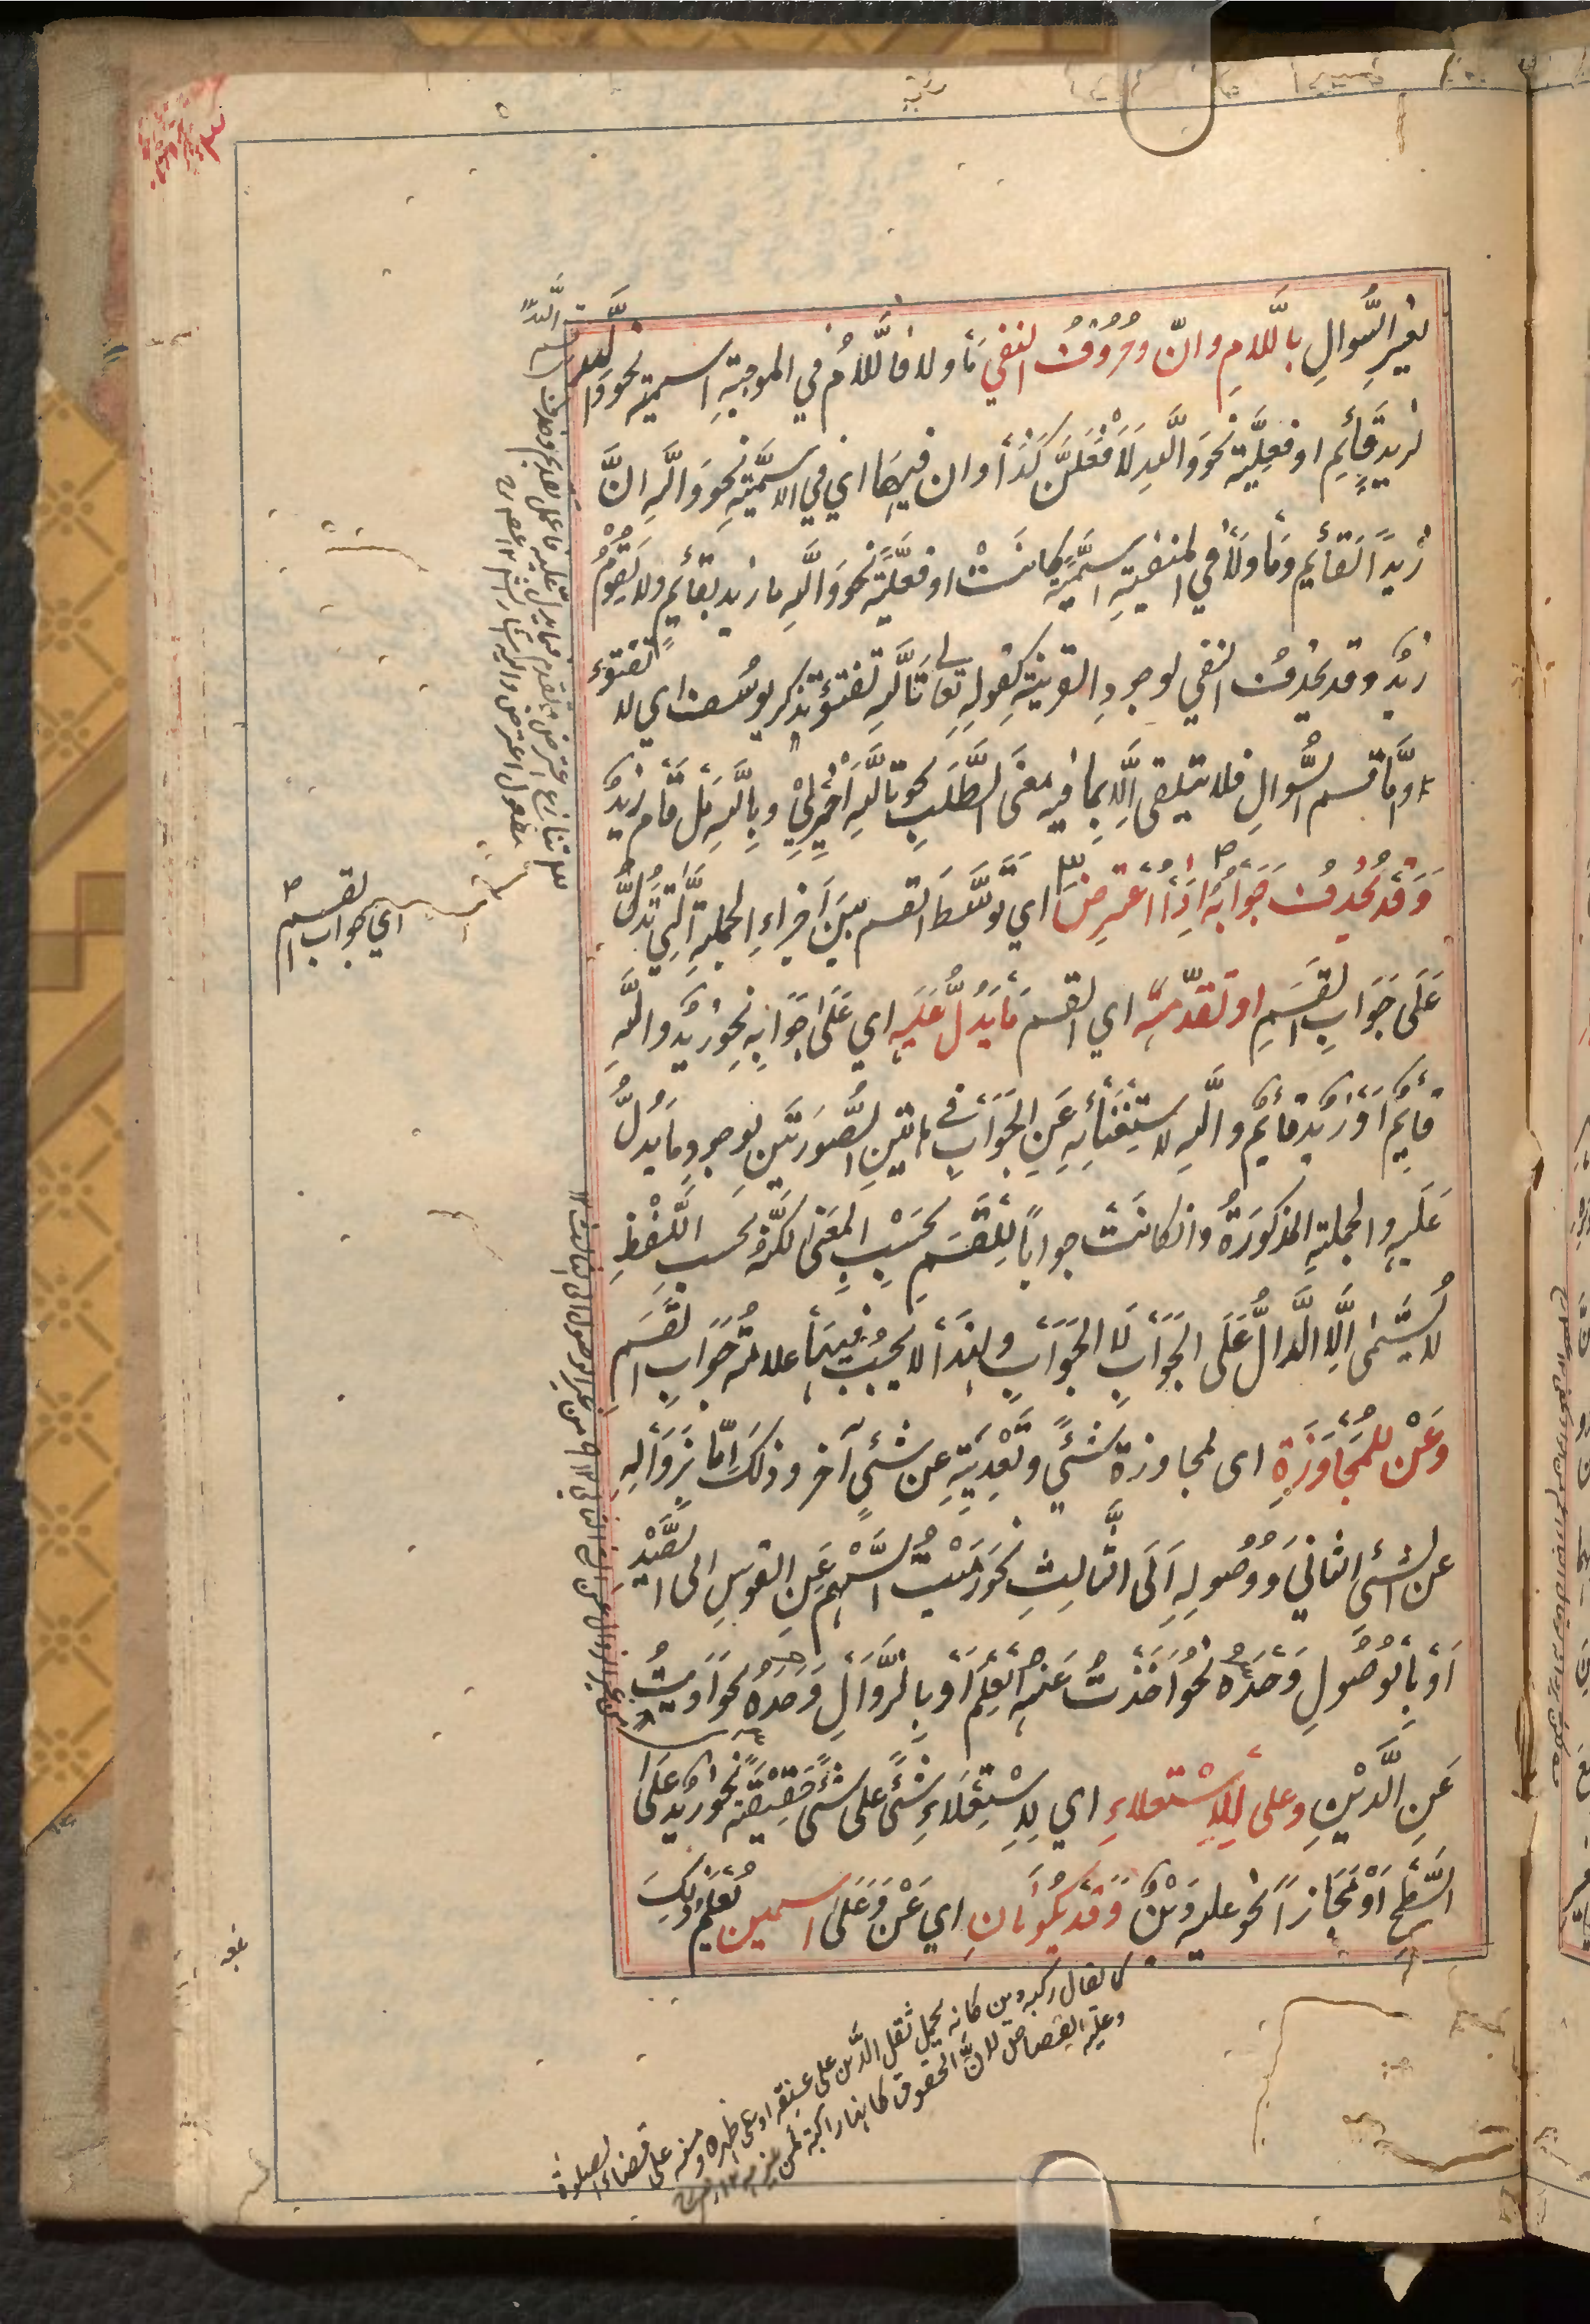 لغير السُّوالِ باللَّامِ وانّ وحُرُوفُ النفي مَا ولا فاللَّامُ في الموجبةِ اسميّة نحو واللّٰه
لزيدٌ قائمٌ او فعليَّة نحو واللّٰهِ لَاَفْعَلَنَّ كَذَا وان فيها اي في الاسميَّةِ نحو واللّٰهِ انَّ
زيدًا لقائِمٌ ومَا ولَا في المنفيةِ اسميَّةً كانَتْ او فعليَّةً نحو واللّٰهِ ما زيد بقائمٍ ولا يقُومُ
زيدٌ وقد يحذفُ النفي لوجودِ القرينةِ كقولِهِ تعالى تَاللّٰهِ تفتؤ تذكر يوسف اي لا تفتؤ
وامَّا قسم السُّوالِ فلا يتلقى اِلَّا بما فيه معنَى الطَّلَبِ نحو تاللّٰهِ اَخْبِرْنِيْ وباللّٰهِ هَل قَام زيدٌ
وَقَد يُحذفُ جَوَابُهُ اِذَا اعتُرِضَ اي توسَّطَ القسم بينَ اَجزاءِ الجملةِ الَّتِي تَدُلُّ
عَلَى جَوَابِ القَسَمِ او تَقَدَّمَهُ اي القسم مَا يَدُلُّ عَلَيهِ اي عَلَى جَوَابِهِ نحو زيدٌ واللّٰهِ
قائِمٌ اَوْ زيدٌ قائمٌ واللّٰهِ لاستغنَائِهِ عَنِ الجَوَابِ في هاتينِ الصُّورَتَينِ لوجودِ مَا يَدُلُّ
عَلَيهِ والجملةِ المذكورَةُ وان كانَتْ جوابًا لِلْقَسَمِ بحسَبِ المعنى لكنّهُ بحسبِ اللَّفْظِ
لا يُسَمّى اِلَّا الدَّالُّ عَلَى الجَوَابِ لَا الجَوَابِ ولهٰذَا لا يَجِبُ فيهَا علامةُ جَوَابِ القَسَمِ
وَعَنْ للمُجَاوَزَةِ اى لمجاوزة شئٍ وتَعْدِيَتِهِ عن شئٍ آخر وذلكَ اِمّا بزَوَالِهِ
عن الشئِ الثانيَ وَوُصُولِهِ اِلَى الثَّالِثِ نحو رَمَيْتُ السَّهْمَ عَنِ القوسِ الى الصَّيْدِ
اَوْ بِالوُصُولِ وَحدَهُ نحو اَخَذْتُ عَنهُ العِلْمَ اَوْ بِالزَّوَالِ وَحدَهُ نحو اَدَّيتُ
عَنِ الدَّيْنِ وعلى لِلِاسْتعلاءِ اي لِاسْتِعْلَاءِ شئٍ على شئٍ حَقِيقةً نحو زيدٌ عَلَى
السَّطْحِ اَوْ مَجَازًا نحو عليه دَيْنٌ وَقَد يَكُونَانِ اي عَنْ وَعَلى اسمين يُعْلَمُ ذلِكَ
اي جواب القسم
كما يقال ركبه دين كانه يحمل ثقل الدَّين على عنقه او على ظهره ومنه على قضاء الصلوة
وعليه القصاص لانَّ الحقوق كانها راكبة لمن